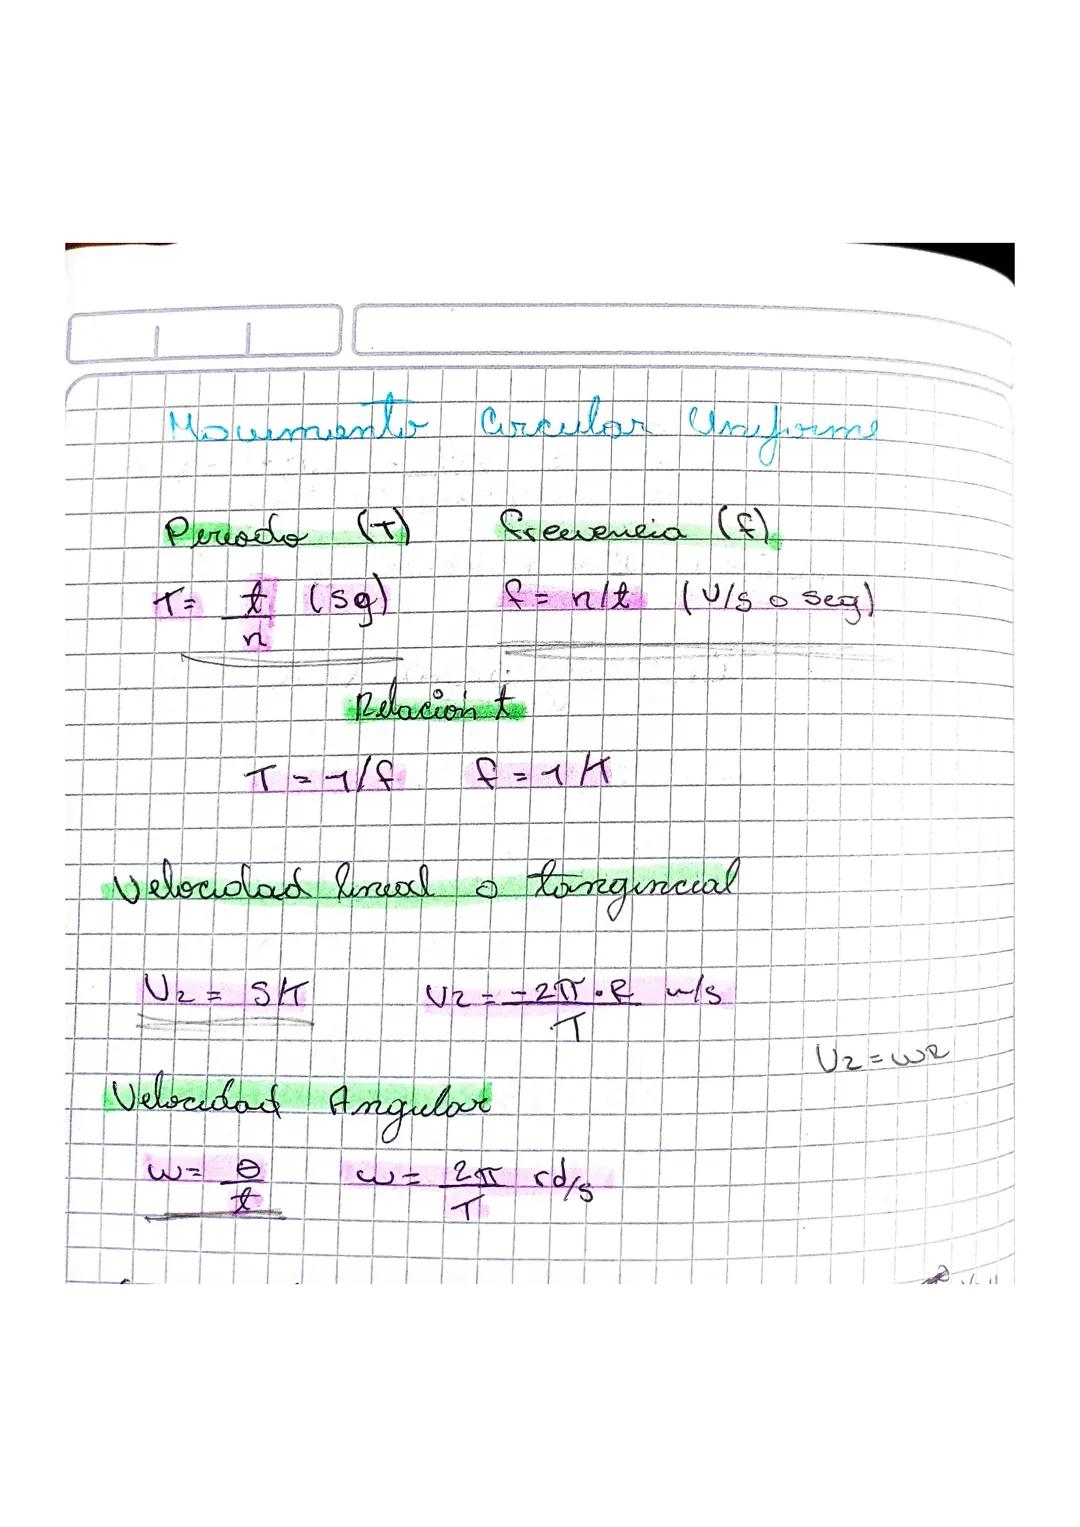 Movimiento Circular Uniforme
Periodo (T) frecuencia (f)
T= t/n (sg) f= n/t (v/s o seg)
Relación t
T=1/f f=1/t
Velocidad lineal o tangencial
V2= S/t V2= -2π.R/T m/s
V2=WR
Velocidad Angular
w= θ/t w= 2π/T rd/s